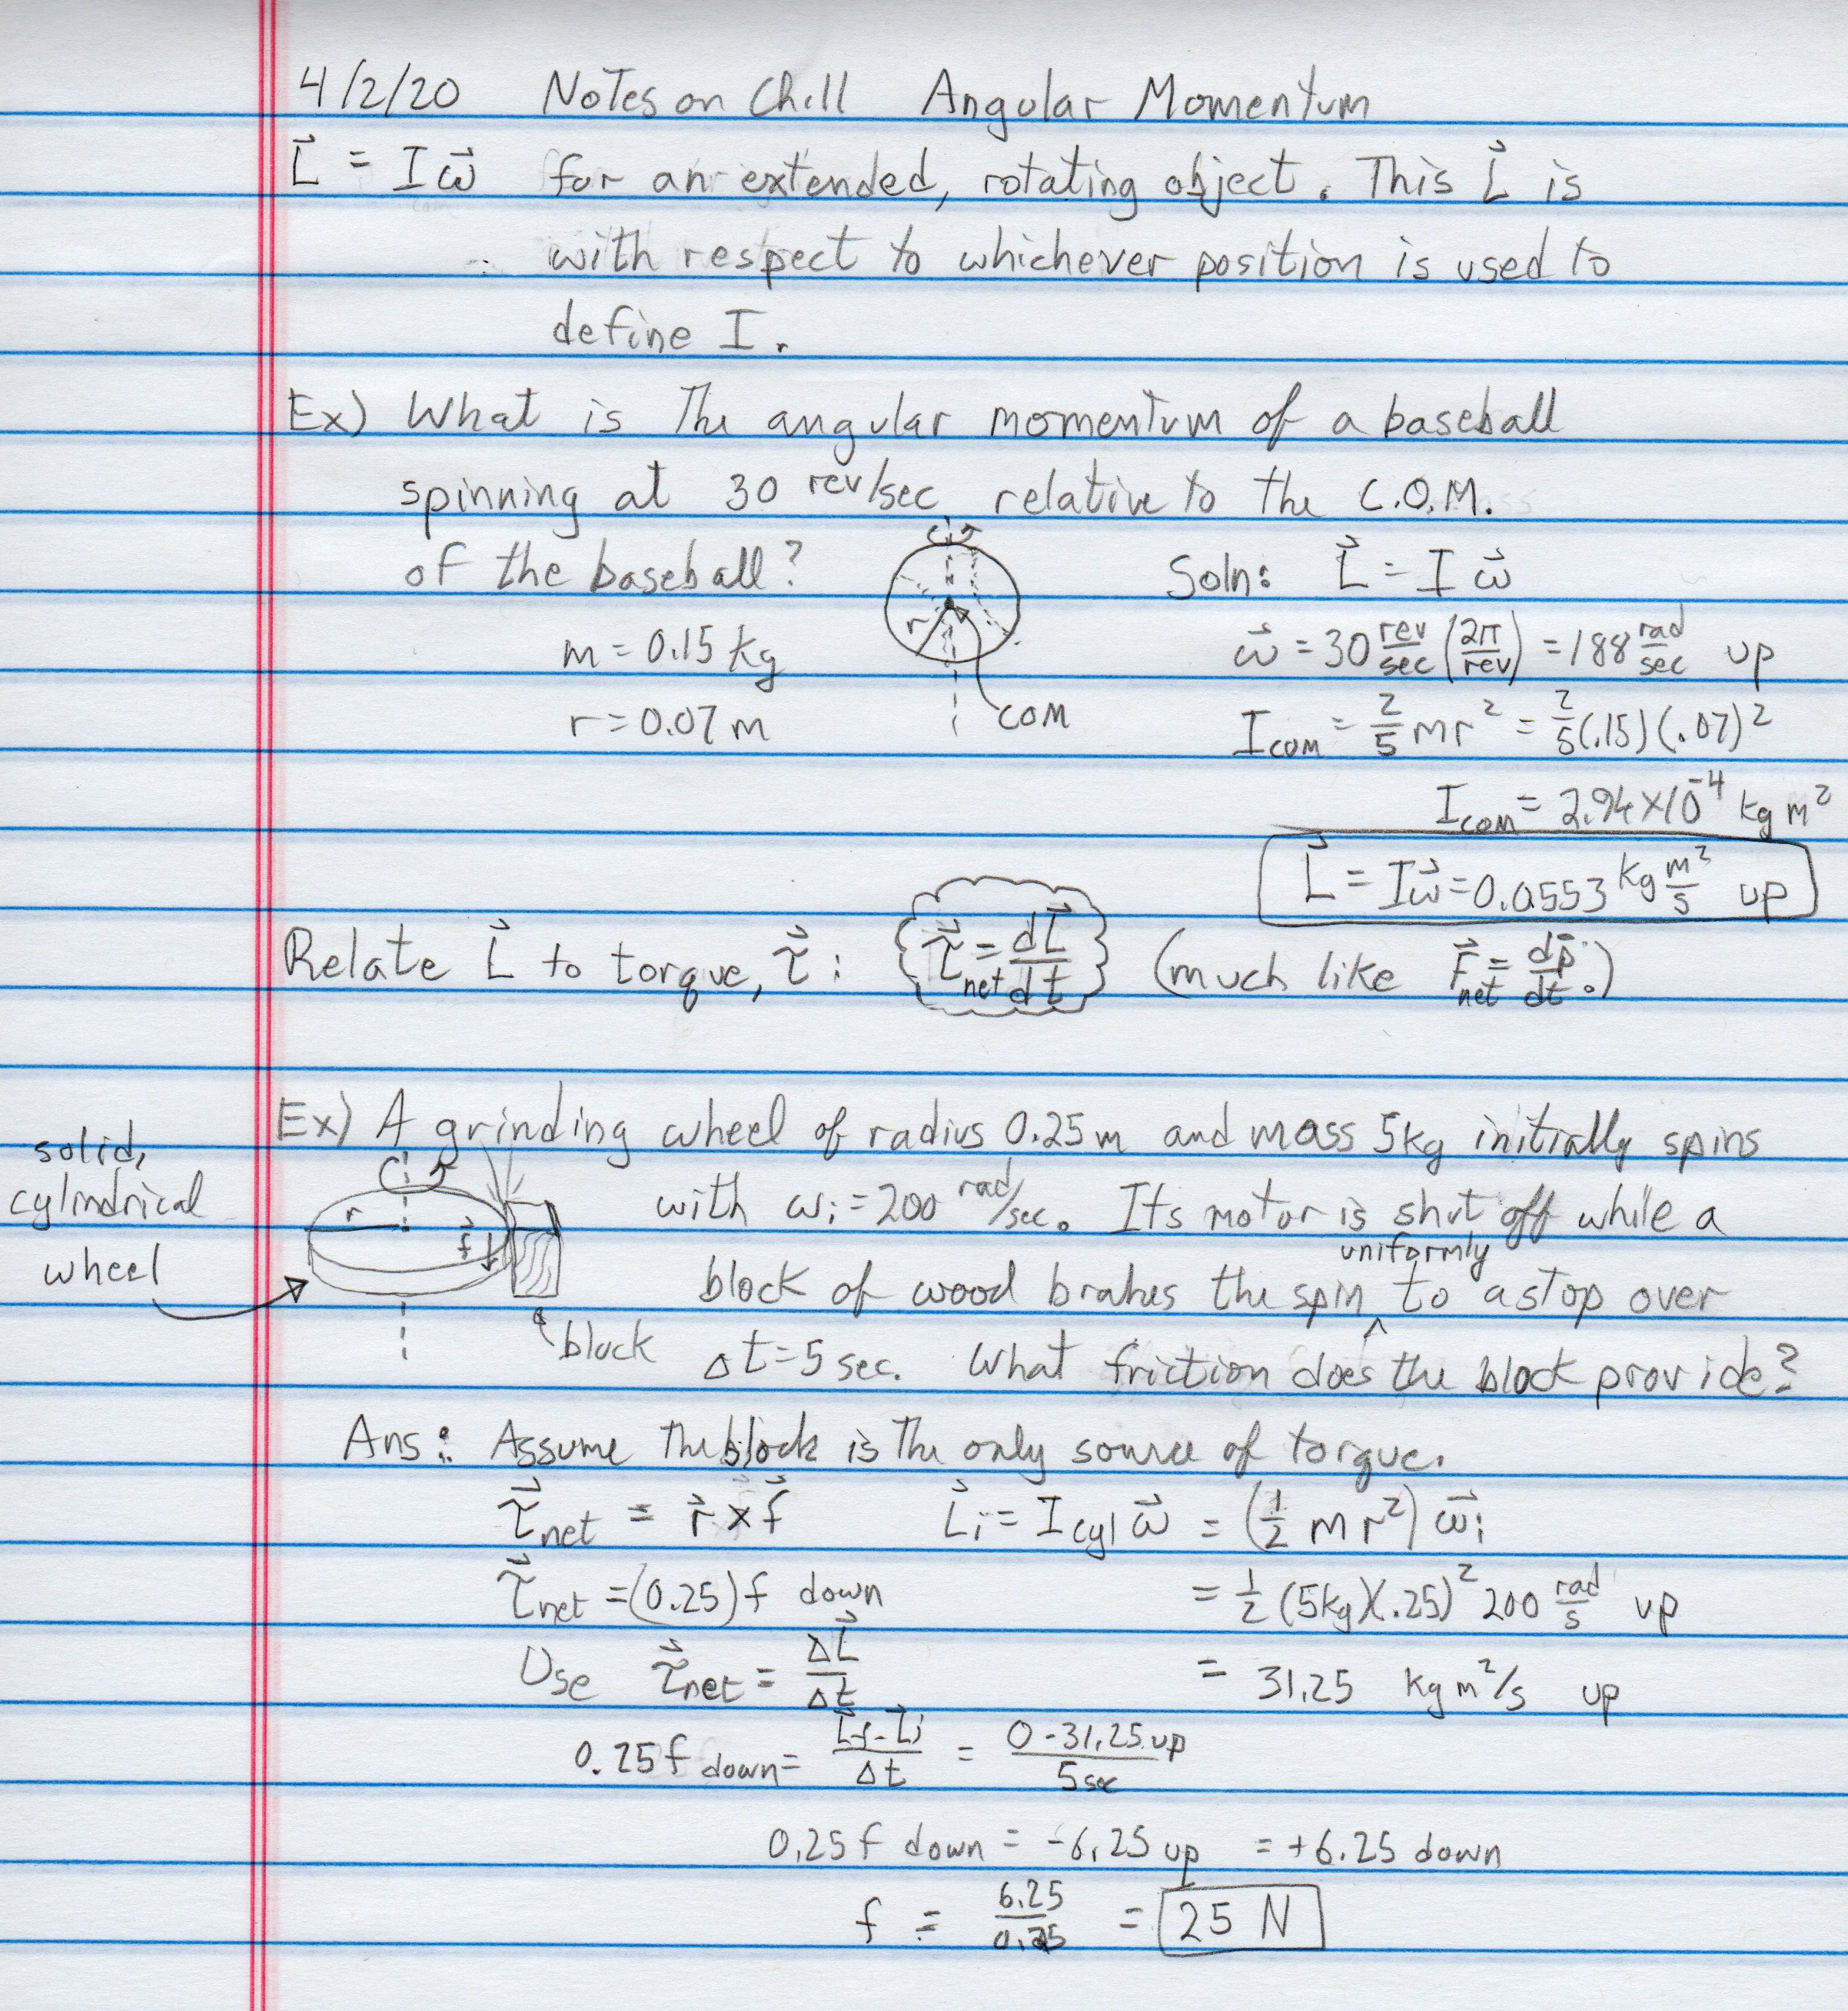 4/2/20 Notes on Ch11 Angular Momentum
L⃗ = Iω⃗ for an extended, rotating object. This L⃗ is
with respect to whichever position is used to
define I.
Ex) What is the angular momentum of a baseball
spinning at 30 rev/sec relative to the C.O.M.
of the baseball?
r
COM
m = 0.15 kg
r = 0.07 m
Soln: L⃗ = I ω⃗
ω⃗ = 30 rev/sec (2π/rev) = 188 rad/sec up
I_COM = 2/5 mr² = 2/5(.15)(.07)²
I_COM = 2.94×10⁻⁴ kg m²
L⃗ = Iω⃗ = 0.0553 kg m²/s up
Relate L⃗ to torque, τ⃗ : τ⃗_net = dL⃗/dt (much like F⃗_net = dp⃗/dt.)
Ex) A grinding wheel of radius 0.25m and mass 5kg initially spins
with ωi = 200 rad/sec. Its motor is shut off while a
uniformly
block of wood brakes the spin ^ to a stop over
Δt = 5 sec. What friction does the block provide?
solid,
cylindrical
wheel
r
f⃗
block
Ans: Assume the block is the only source of torque.
τ⃗_net = r⃗ × f⃗ L⃗i = I_cyl ω⃗ = (1/2 mr²) ω⃗i
τ⃗_net = (0.25) f down = 1/2 (5kg)(.25)² 200 rad/s up
Use τ⃗_net = ΔL⃗/Δt = 31.25 kg m²/s up
0.25f down = (L⃗f - L⃗i)/Δt = (0 - 31.25 up)/5 sec
0.25 f down = -6.25 up = +6.25 down
f = 6.25/0.25 = 25 N